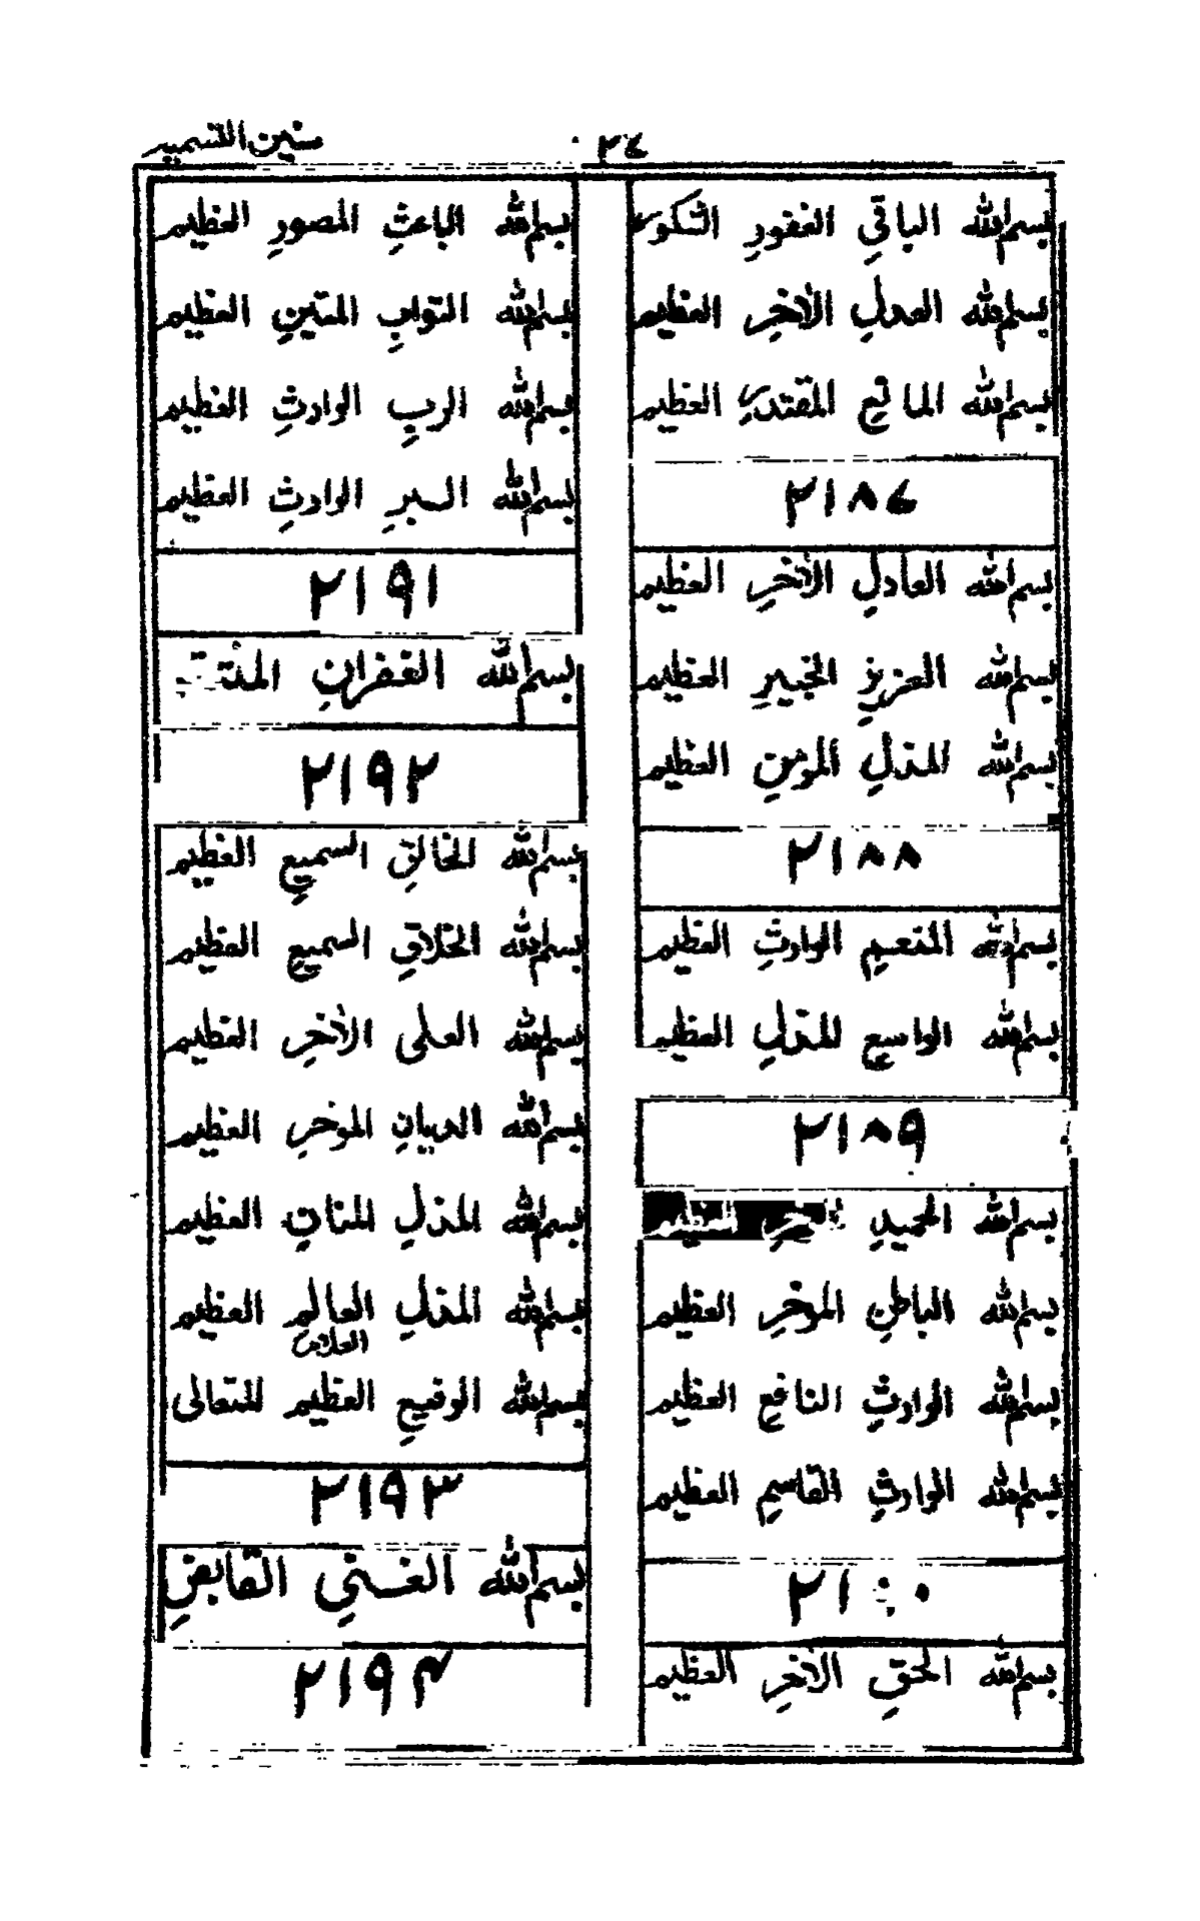 ٢٤
سنين التسمير
بسم الله الباقي الغفور الشكور
بسم الله العدل الأخر العظيم
بسم الله المانع المقتدر العظيم
٢١٨٤
بسم الله العادل الأخر العظيم
بسم الله العزيز الخبير العظيم
بسم الله المذل المومن العظيم
٢١٨٨
بسم الله المنعم الوارث العظيم
بسم الله الواسع المذل العظيم
٢١٨٩
بسم الله الحميد
بسم الله الباطن الموخر العظيم
بسم الله الوارث النافع العظيم
بسم الله الوارث القاسم العظيم
بسم الله الحق الأخر العظيم
بسم الله الباعث المصور العظيم
بسم الله التواب المتين العظيم
بسم الله الرب الوارث العظيم
بسم الله البر الوارث العظيم
٢١٩١
بسم الله الغفران
٢١٩٢
بسم الله الخالق السميع العظيم
بسم الله الخلاق السميع العظيم
بسم الله العلى الأخر العظيم
بسم الله الديان الموخر العظيم
بسم الله المذل المنان العظيم
بسم الله المذل العالم العظيم
العلام
بسم الله الرفيع العظيم المتعالى
٢١٩٣
بسم الله الغني القابض
٢١٩٤